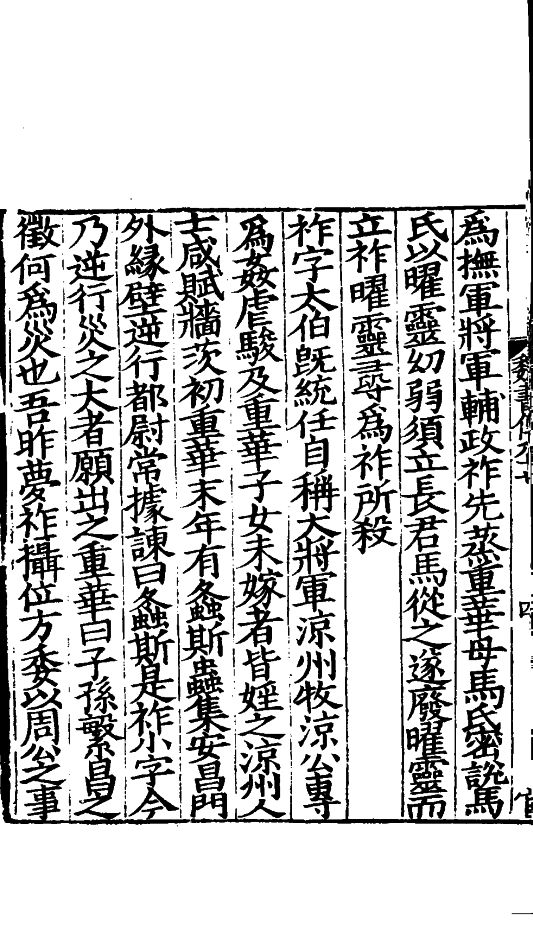 爲撫軍將軍輔政祚先烝重華母馬氏密說馬
氏以曜靈幼弱須立長君馬從之遂廢曜靈而
立祚曜靈尋爲祚所殺
祚字太伯旣統任自稱大將軍涼州牧涼公專
爲姦虐駿及重華子女未嫁者皆婬之涼州人
士咸賦牆茨初重華末年有螽斯蟲集安昌門
外緣壁逆行都尉常據諫曰螽斯是祚小字今
乃逆行災之大者願出之重華曰子孫繁昌之
徵何爲災也吾昨夢祚攝位方委以周公之事